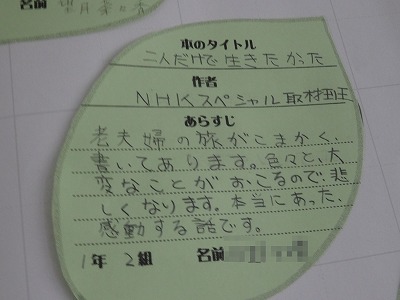 名前
本のタイトル
二人だけで生きたかった
作者
NHKスペシャル取材班
あらすじ
老夫婦の旅がこまかく、
書いてあります。色々と、大
変なことがおこるので悲
しくなります。本当にあった、
感動する話です。
1年 2組 名前